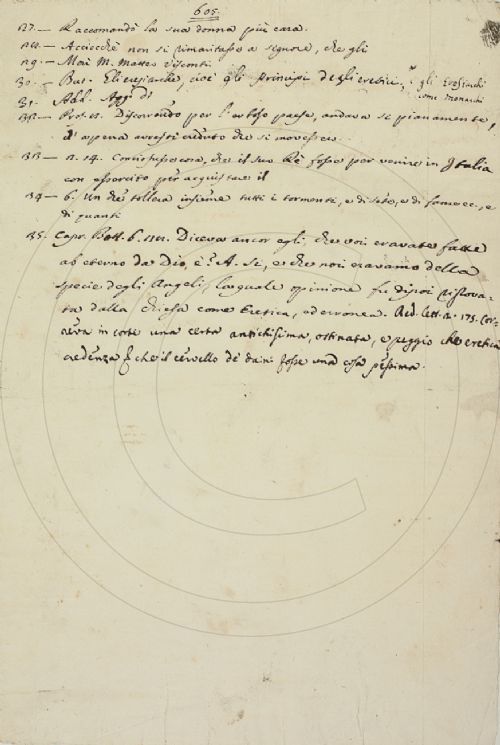 605.
127.— Raccomandò la sua donna più cara.
128.— Acciocchè non si rimaritasse a signore, che gli
129.— Mai M. Matteo Visconti.
30.— But. Eliresiarche, cioè gli principi degli eretici, gli Eresiachi come monachi
31.— Add. Agg. di
132.— Discorrendo per l'erboso paese, andava sì pianamente,
che appena avresti creduto che si movesse.
133— n. 14. che il suo Re fosse per venire in Italia
con essercito per acquistare il
34— 6. Un che tollera insieme tutti i tormenti, e di sete, e di fame ec., e
di quanti
35. Capr. Bott. 6. 121. Diceva ancor egli, che voi eravate fatte
ab eterno da Dio, e A. sì, e che noi eravamo della
specie degli Angeli, la quale opinione fu dipoi riprova-
ta dalla chiesa come Eretica, ed erronea. Red. lett. 2. 175. Cor-
reva in corte una certa antichissima, ostinata, e peggio che eretica
credenza che il cervello de' daini fosse una cosa pessima.